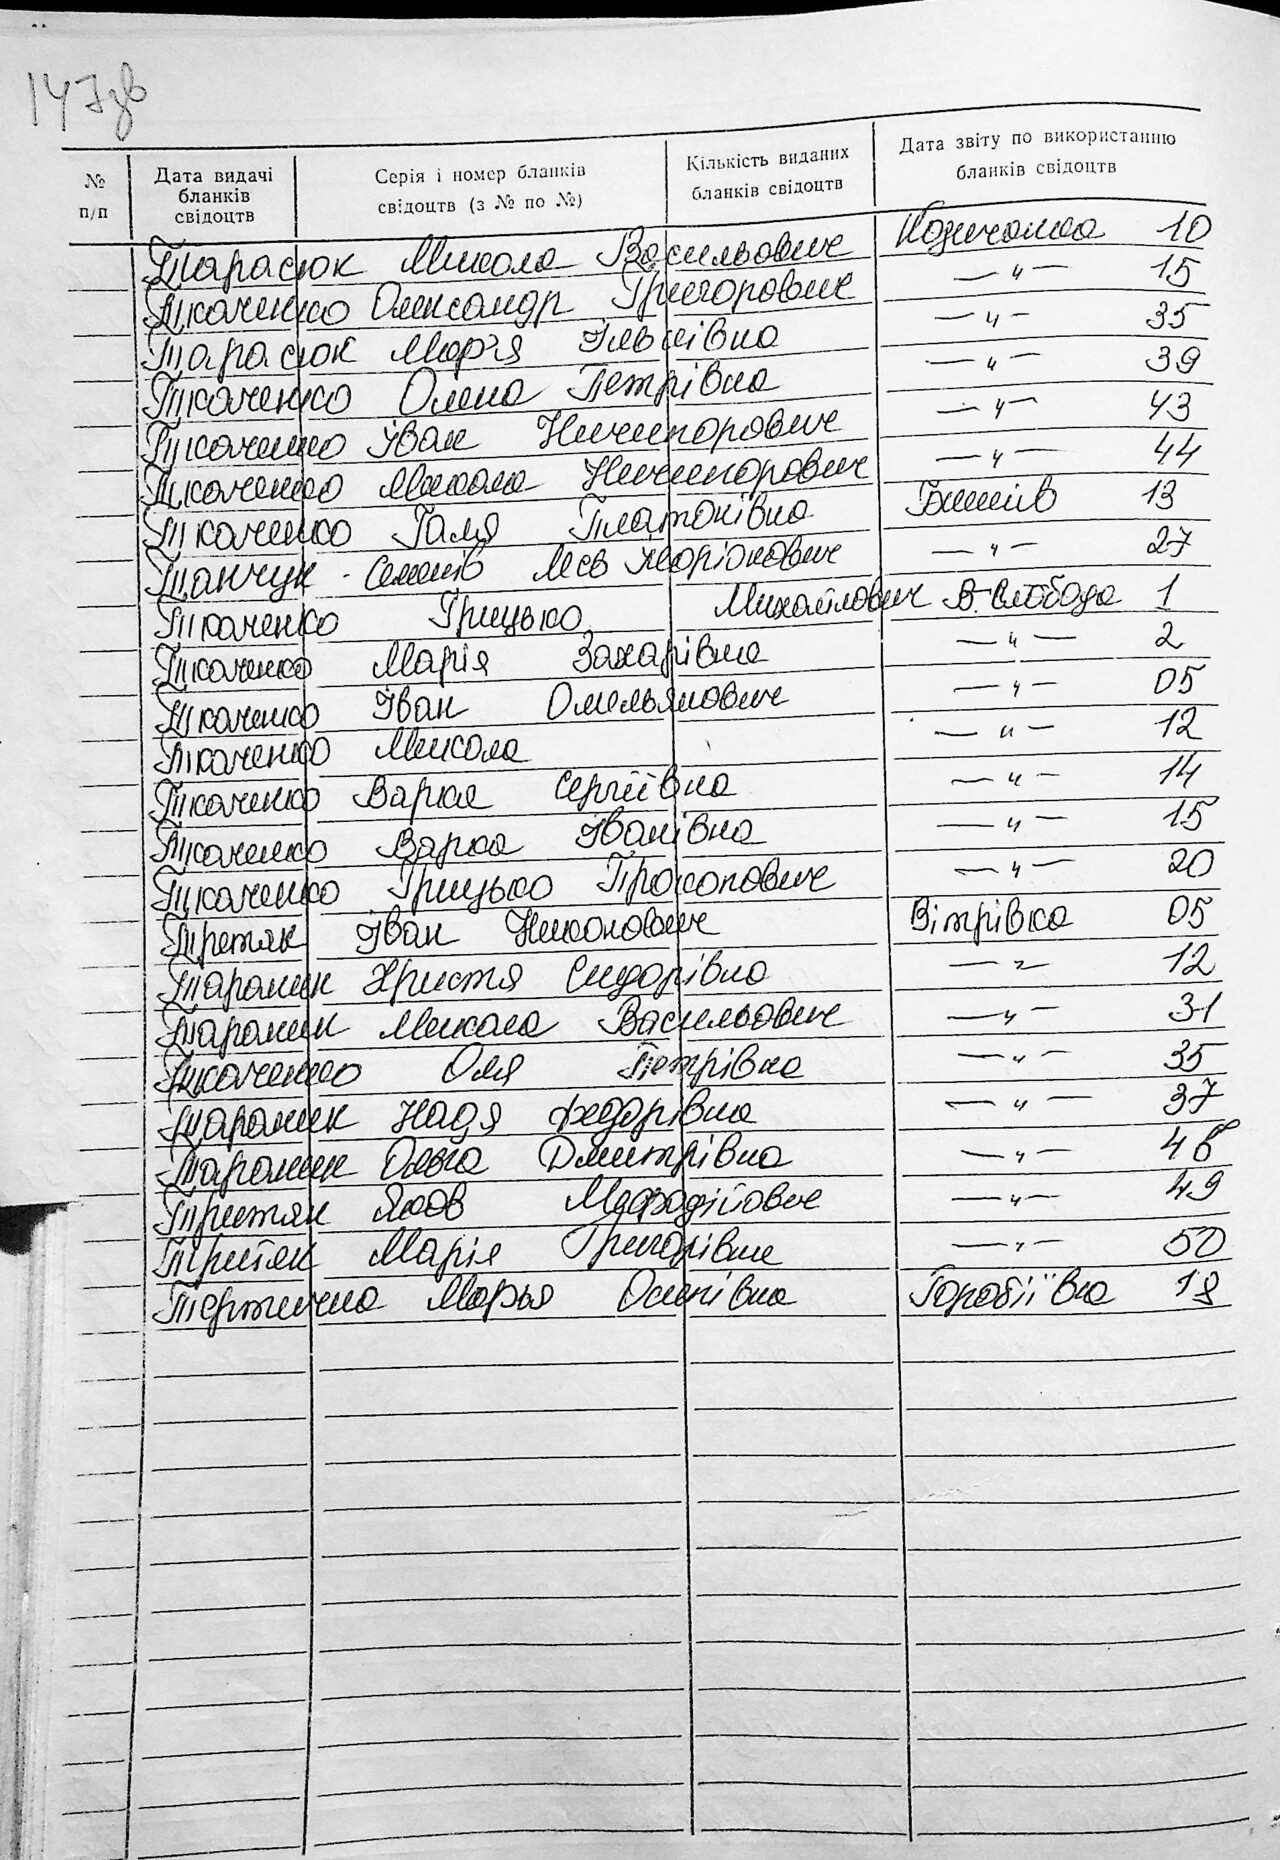 147зв
№ п/п
Дата видачі бланків свідоцтв
Серія і номер бланків свідоцтв (з № по №)
Кількість виданих бланків свідоцтв
Дата звіту по використанню бланків свідоцтв
Тарасюк Микола Васильович Козичанка 10
Ткаченко Олександр Григорович —"— 15
Тарасюк Мар'я Ільківна —"— 35
Ткаченко Олена Петрівна —"— 39
Ткаченко Іван Ничипорович —"— 43
Ткаченко Микола Ничипорович —"— 44
Ткаченко Галя Платонівна Бишів 13
Танчук-Семенів Лев Іларіонович —"— 27
Ткаченко Грицько Михайлович В. Слобода 1
Ткаченко Марія Захарівна —"— 2
Ткаченко Іван Омельянович —"— 05
Ткаченко Микола —"— 12
Ткаченко Варка Сергіївна —"— 14
Ткаченко Варка Іванівна —"— 15
Ткаченко Грицько Прокопович —"— 20
Третяк Іван Никонович Вітрівка 05
Тараник Христя Сидорівна —"— 12
Тараник Микола Васильович —"— 31
Ткаченко Оля Петрівна —"— 35
Тараник Надя Федорівна —"— 37
Тараник Ольга Дмитрівна —"— 46
Притяк Яков Мефодійович —"— 49
Тритяк Марія Григорівна —"— 50
Тертична Марья Осипівна Горобіївка 18